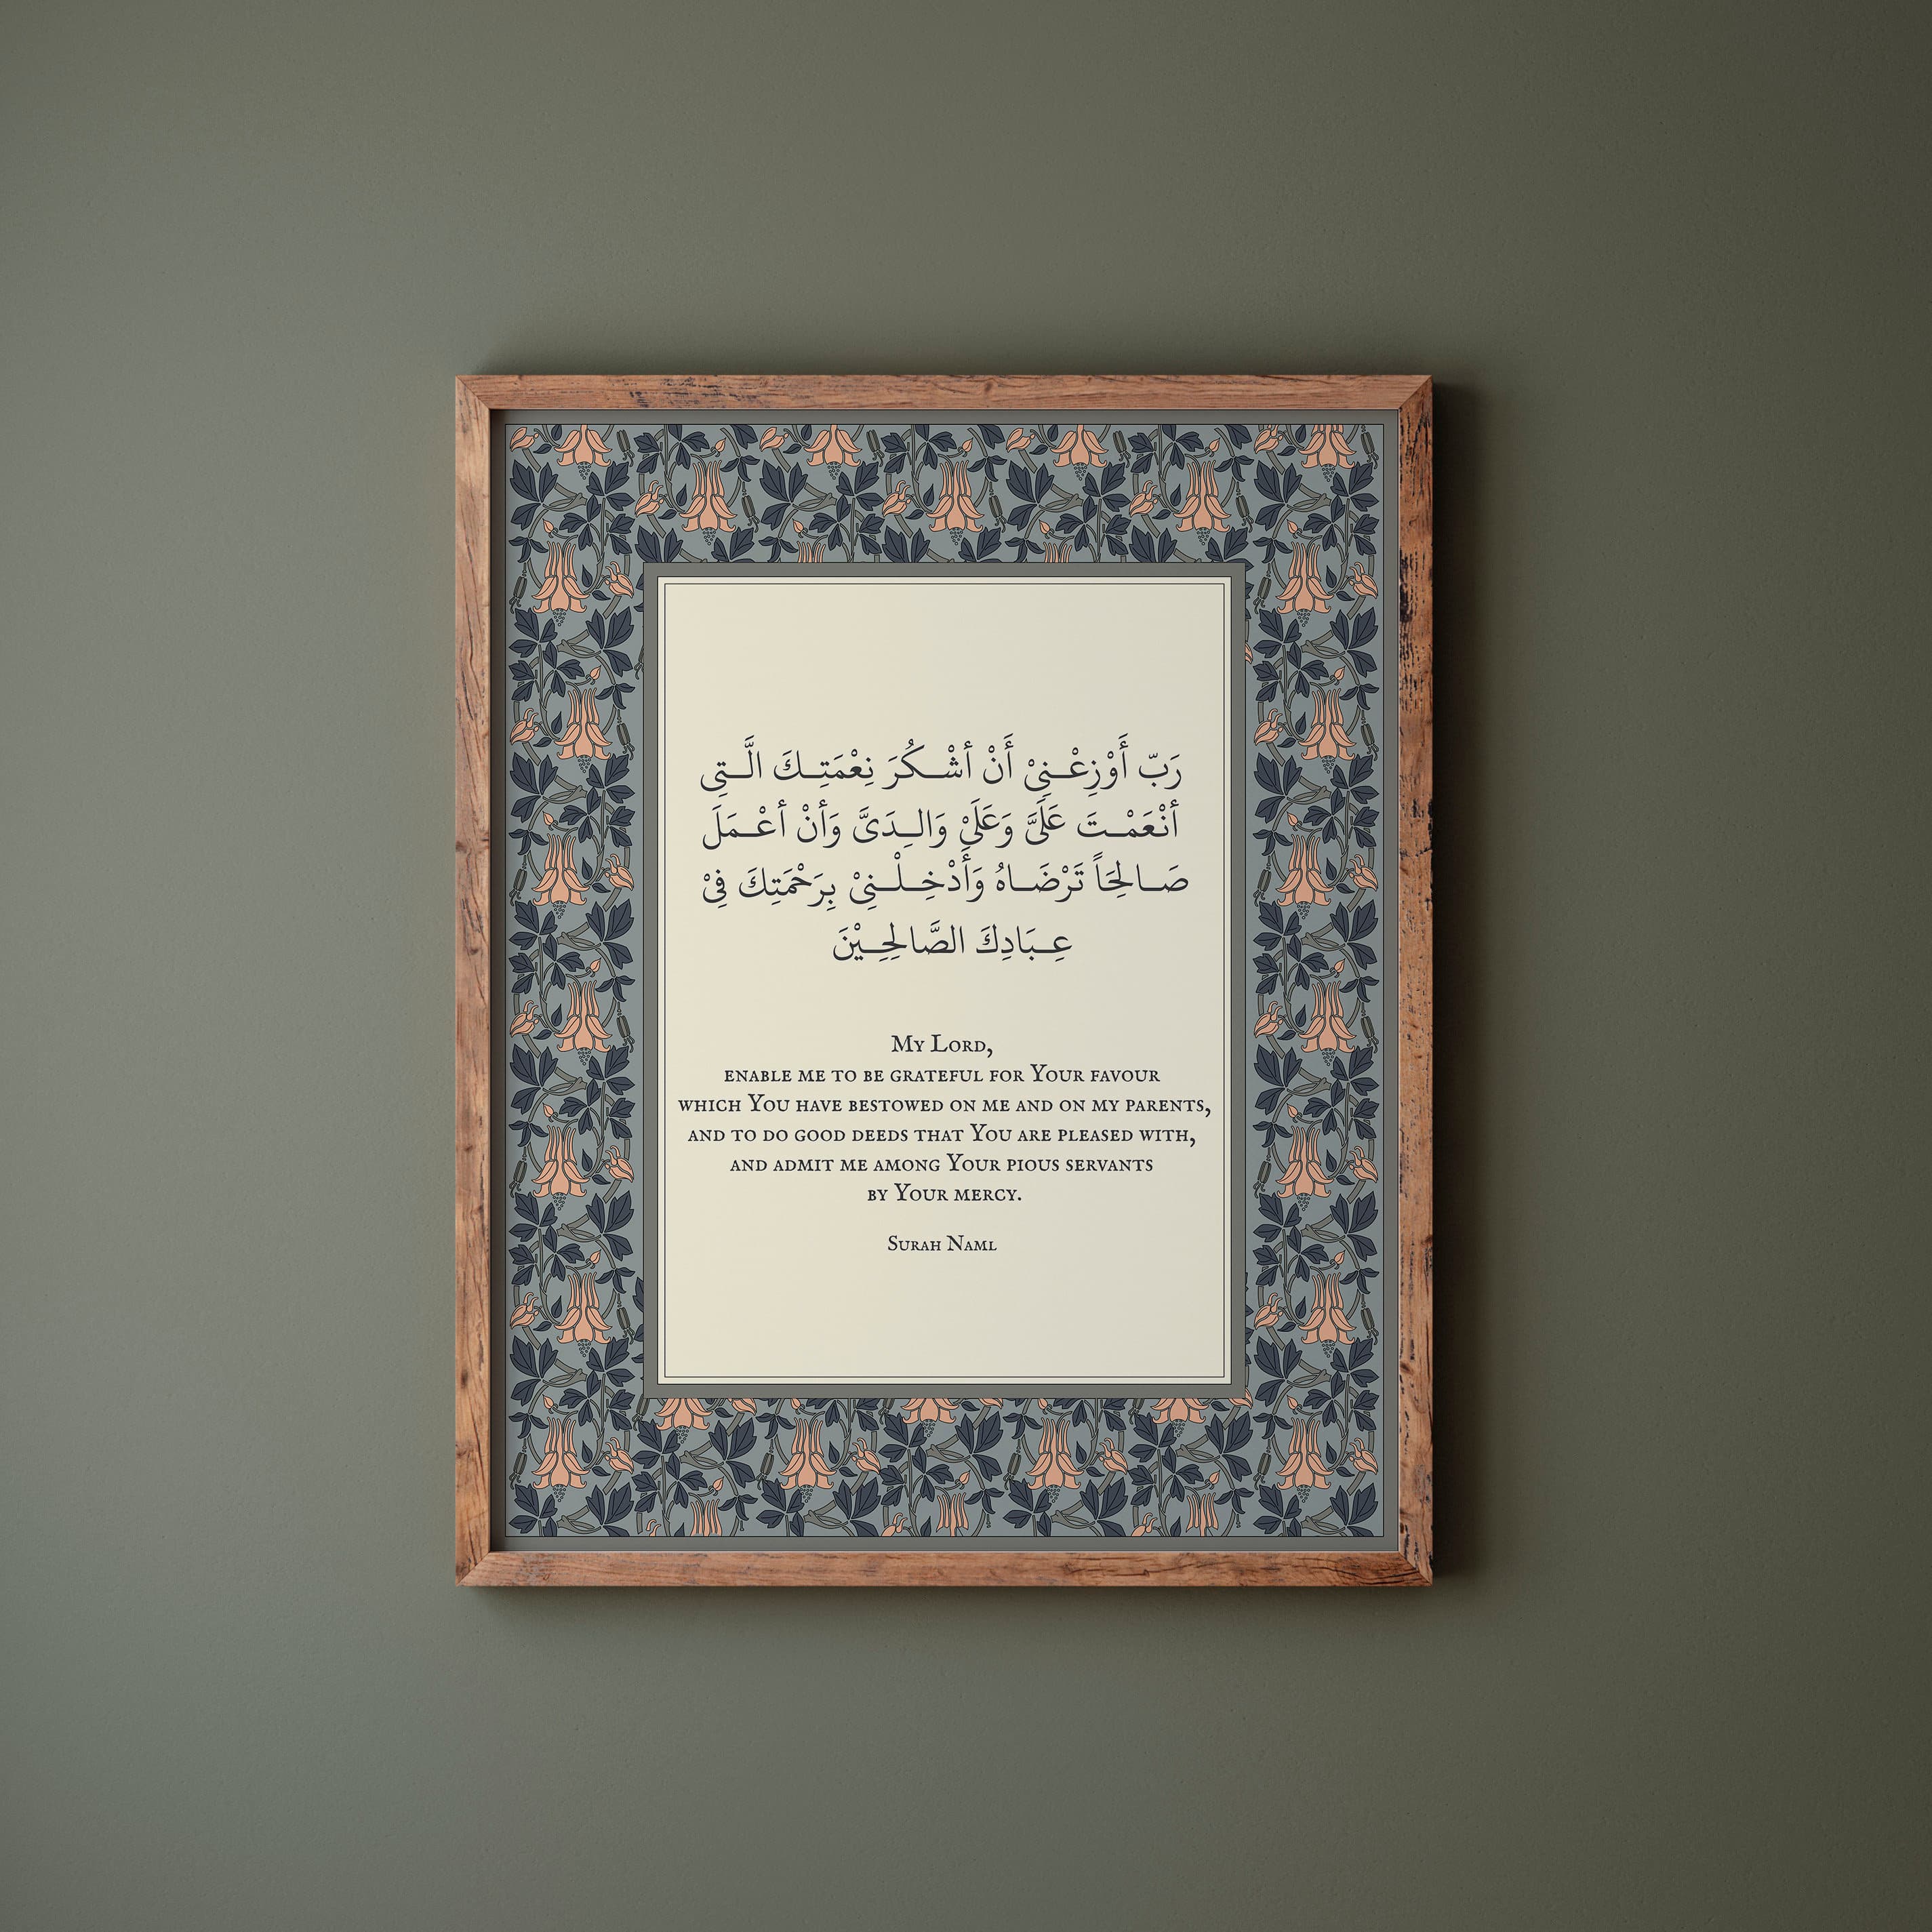 رَبّ أَوْزِعْنِىْ أَنْ أشْكُرَ نِعْمَتِكَ الَّتِى
أنْعَمْتَ عَلَىَّ وَعَلَىْ وَالِدَىَّ وَأنْ أعْمَلَ
صَالِحَاً تَرْضَاهُ وَأَدْخِلْنِىْ بِرَحْمَتِكَ فِىْ
عِبَادِكَ الصَّالِحِيْنَ
My Lord,
enable me to be grateful for Your favour
which You have bestowed on me and on my parents,
and to do good deeds that You are pleased with,
and admit me among Your pious servants
by Your mercy.
Surah Naml